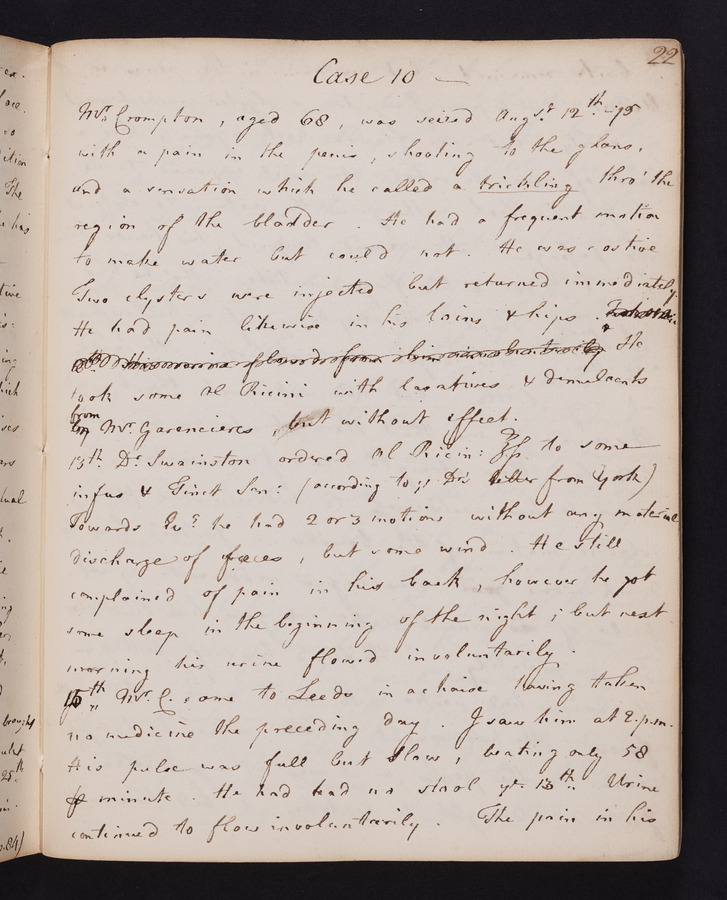 22
Case 10 —
Mr. Crompton, aged 68, was seized Augst. 12th -95
with a pain in the penis, shooting to the glans,
and a sensation which he called a trickling thro' the
region of the bladder. He had a frequent motion
to make water but could not. He was costive
Two clysters were injected but returned immediately.
He had pain likewise in his loins & hips.
He
took some Ol Ricini with laxatives & demulcents
from Mr. Garencieres, but without effect.
13th. Dr. Swainston ordered Ol Ricin: ℥ſs. to some
infus & Tinct Sen: (according to ye. Drs letter from York)
Towards Eve. he had 2 or 3 motions without any material
discharge of fæces, but some wind. He still
complained of pain in his back, however he got
some sleep in the beginning of the night; but next
morning his urine flowed involuntarily.
15th. Mr. C. came to Leeds in a chaise having taken
no medicine the preceding day. I saw him at 2. p.m.
His pulse was full but slow, beating only 58
minute. He had had no stool ye. 13th. Urine
continued to flow involuntarily. The pain in his